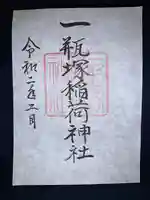 一瓶塚稲荷神社
令和二年二月